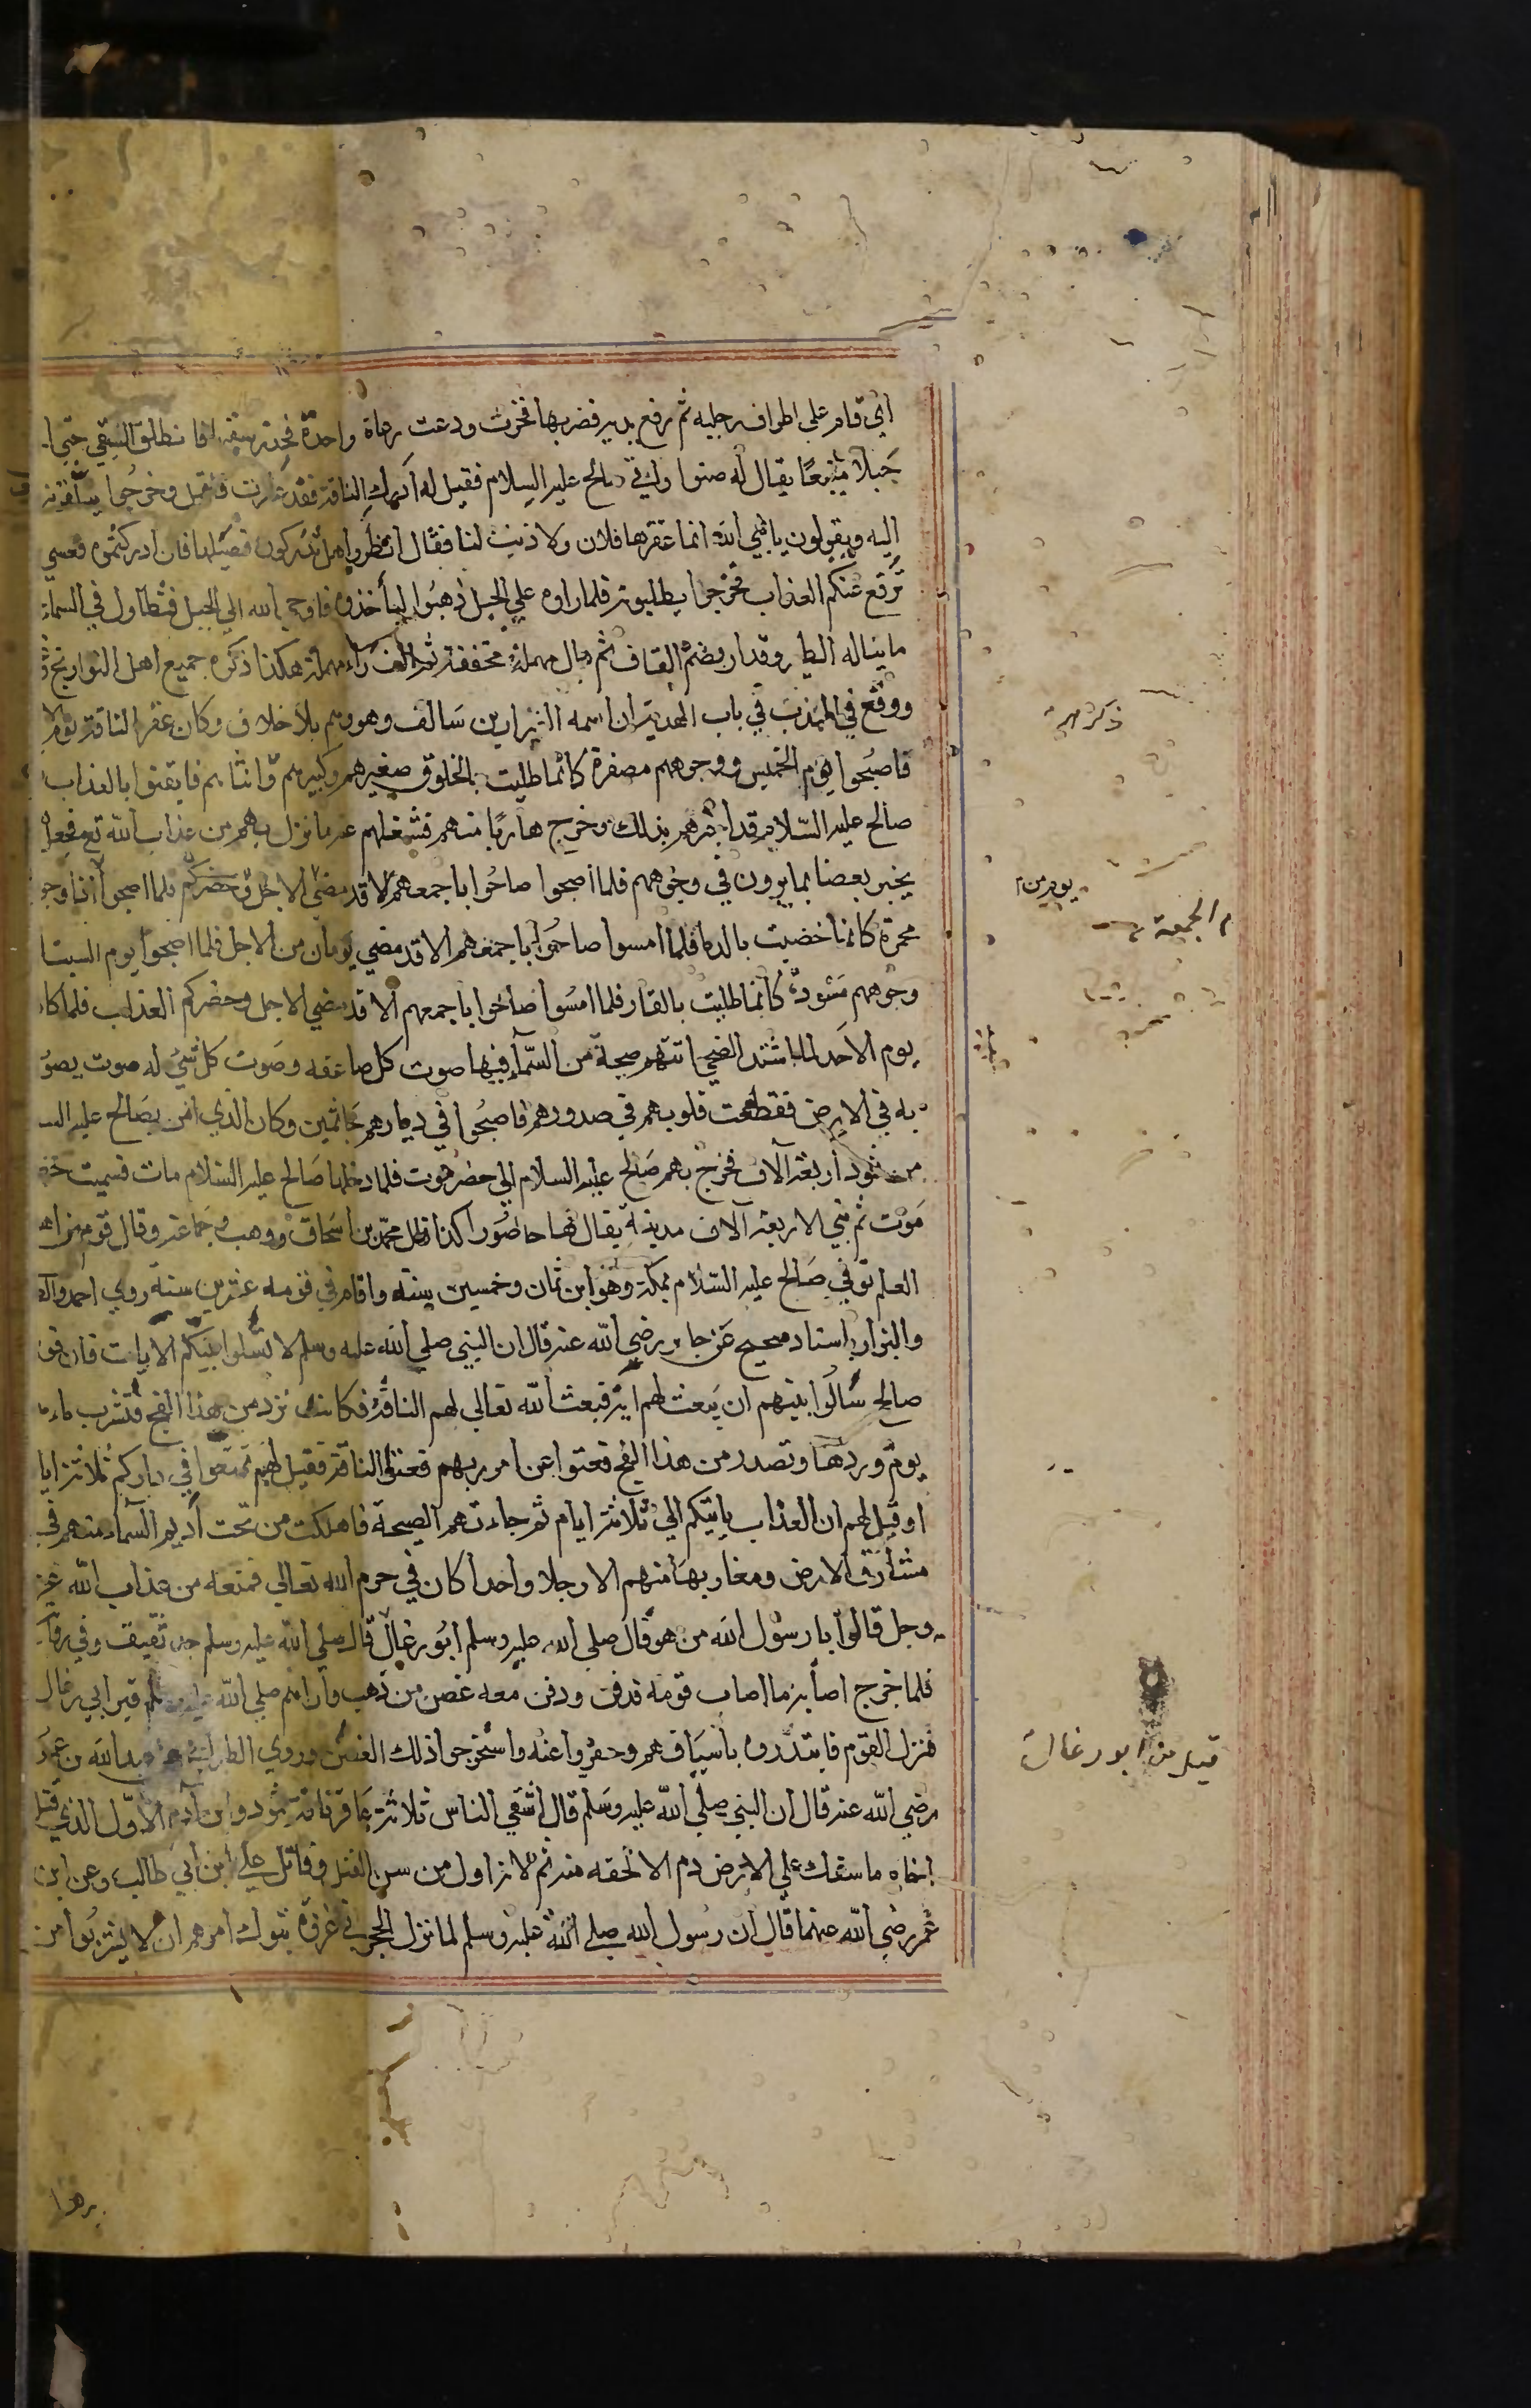 اي قام على اطراف رجليه ثم رفع يديه فضربها فخرت ودعت رغاة واحدة فانطلق السقي حتى ا
جبلا منيعا يقال له صنوا واتي صالح عليه السلام فقيل له ادرك الناقة فقد عقرت فاقبل وخرجوا يتلقونه
اليه ويقولون يا نبي الله انما عقرها فلان ولا ذنب لنا فقال انظروا هل تدركون فصيلها فان ادركتموه فعسى
ترفع عنكم العذاب فخرجوا يطلبونه فلما راوه على الجبل ذهبوا ليأخذوه فاوحى الله الى الجبل فتطاول في السماء
ما يناله الطير وقدار بضم القاف ثم دال مهملة مخففة ثم الف راء مهملة هكذا ذكره جميع اهل التواريخ
ووقع في المهذب في باب الهدية ان اسمه العيزار بن سالف وهو وهم بلا خلاف وكان عقر الناقة يوم الا
فاصبحوا يوم الخميس ووجوههم مصفرة كانما طليت بالخلوق صغيرهم وكبيرهم وانثاهم فايقنوا بالعذاب
صالح عليه السلام قد اخبرهم بذلك وخرج هاربا منهم فشغلهم عنه ما نزل بهم من عذاب الله تع فجعل
يخبر بعضا بما يرون في وجوههم فلما اصبحوا صاحوا باجمعهم الا قد مضى الاجل وحضركم فلما اصبحوا اذا وجو
محمرة كانما خضبت بالدما فلما امسوا صاحوا باجمعهم الا قد مضى يومان من الاجل فلما اصبحوا يوم السبت ا
وجوههم مسودة كانما طليت بالقار فلما امسوا صاحوا باجمعهم الا قد مضى الاجل وحضركم العذاب فلما كا
يوم الاحد لما اشتد الضحى اتتهم صيحة من السماء فيها صوت كل صاعقه وصوت كل شيء له صوت يصو
به في الارض فقطعت قلوبهم في صدورهم فاصبحوا في ديارهم جاثمين وكان الذي امن بصالح عليه الس
من ثمود اربعة آلاف فخرج بهم صالح عليه السلام الى حضرموت فلما دخلها صالح عليه السلام مات فسميت حضر
موت ثم بنى الاربعة آلاف مدينة يقال لها حاضورا كذا قال محمد بن اسحاق ووهب وجماعة وقال قوم من اه
العلم توفي صالح عليه السلام بمكة وهو ابن ثمان وخمسين سنة واقام في قومه عشرين سنة روى احمد والط
والبزار باسناد صحيح عن جابر رضي الله عنه قال ان النبي صلى الله عليه وسلم لا تسلوا نبيكم الايات فان قو
صالح سالوا نبيهم ان يبعث لهم اية فبعث الله تعالى لهم الناقة فكانت ترد من هذا الفج فتشرب ماء
يوم وردها وتصدر من هذا الفج فعتوا عن امر ربهم فعقروا الناقة فقيل لهم تمتعوا في داركم ثلاثة ايا
او قيل لهم ان العذاب ياتيكم الى ثلاثة ايام ثم جاءتهم الصيحة فاهلكت من تحت اديم السماء منهم في
مشارق الارض ومغاربها منهم الا رجلا واحدا كان في حرم الله تعالى فمنعه من عذاب الله عز
وجل قالوا يا رسول الله من هو قال صلى الله عليه وسلم ابو رغال قال صلى الله عليه وسلم جد ثقيف وفي روا
فلما خرج اصابه ما اصاب قومه فدفن ودفن معه غصن من ذهب واراهم صلى الله عليه وسلم قبر ابي رغال
فنزل القوم فابتدروه باسيافهم وحفروا عنه واستخرجوا ذلك الغصن وروى الطبراني عن عبد الله بن عمر
رضي الله عنه قال ان النبي صلى الله عليه وسلم قال اشقى الناس ثلاثة عاقر ناقة ثمود وابن آدم الاول الذي قتل
اخاه ما سفك على الارض دم الا لحقه منه ثم لانه اول من سن القتل وقاتل علي ابن ابي طالب وعن ابن
عمر رضي الله عنهما قال ان رسول الله صلى الله عليه وسلم لما نزل الحجر في غزوة تبوك امرهم ان لا يشربوا من
يوم من
م الجمعة
قبر من ابو رغال